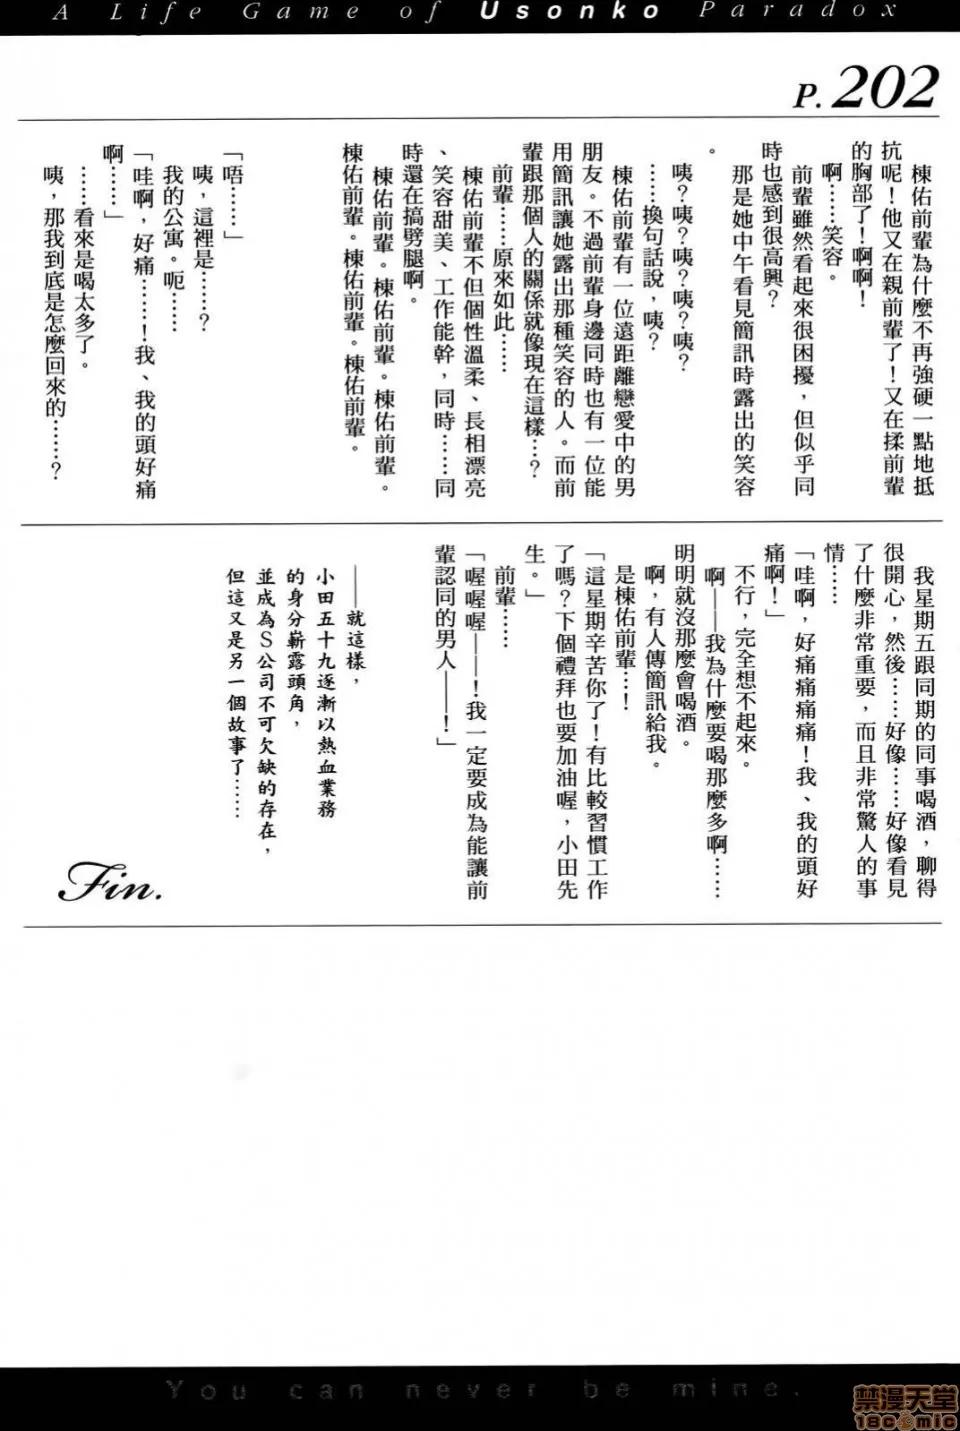 A Life Game of Usonko Paradox
P.202
棟佑前輩為什麼不再強硬一點地抵
抗呢！他又在親前輩了！又在揉前輩
的胸部了！啊啊！
啊……笑容。
前輩雖然看起來很困擾，但似乎同
時也感到很高興？
那是她中午看見簡訊時露出的笑容
。
咦？咦？咦？咦？咦？
……換句話說，咦？
棟佑前輩有一位遠距離戀愛中的男
朋友。不過前輩身邊同時也有一位能
用簡訊讓她露出那種笑容的人。而前
輩跟那個人的關係就像現在這樣…？
前輩……原來如此……
棟佑前輩不但個性溫柔、長相漂亮
、笑容甜美、工作能幹，同時……同
時還在搞劈腿啊。
棟佑前輩。棟佑前輩。棟佑前輩。
棟佑前輩。棟佑前輩。棟佑前輩。
「唔……」
咦，這裡是……？
我的公寓。呃……
「哇啊，好痛……！我、我的頭好痛
啊……」
……看來是喝太多了。
咦，那我到底是怎麼回來的……？
我星期五跟同期的同事喝酒，聊得
很開心，然後……好像……好像看見
了什麼非常重要，而且非常驚人的事
情……
「哇啊，好痛痛痛痛！我、我的頭好
痛啊！」
不行，完全想不起來。
啊——我為什麼要喝那麼多啊……
明明就沒那麼會喝酒。
啊，有人傳簡訊給我。
是棟佑前輩…！
「這星期辛苦你了！有比較習慣工作
了嗎？下個禮拜也要加油喔，小田先
生。」
前輩……
「喔喔喔——！我一定要成為能讓前
輩認同的男人——！」
——就這樣，
小田五十九逐漸以熱血業務
的身分嶄露頭角，
並成為S公司不可欠缺的存在，
但這又是另一個故事了……
Fin.
You can never be mine.
禁漫天堂
18comic